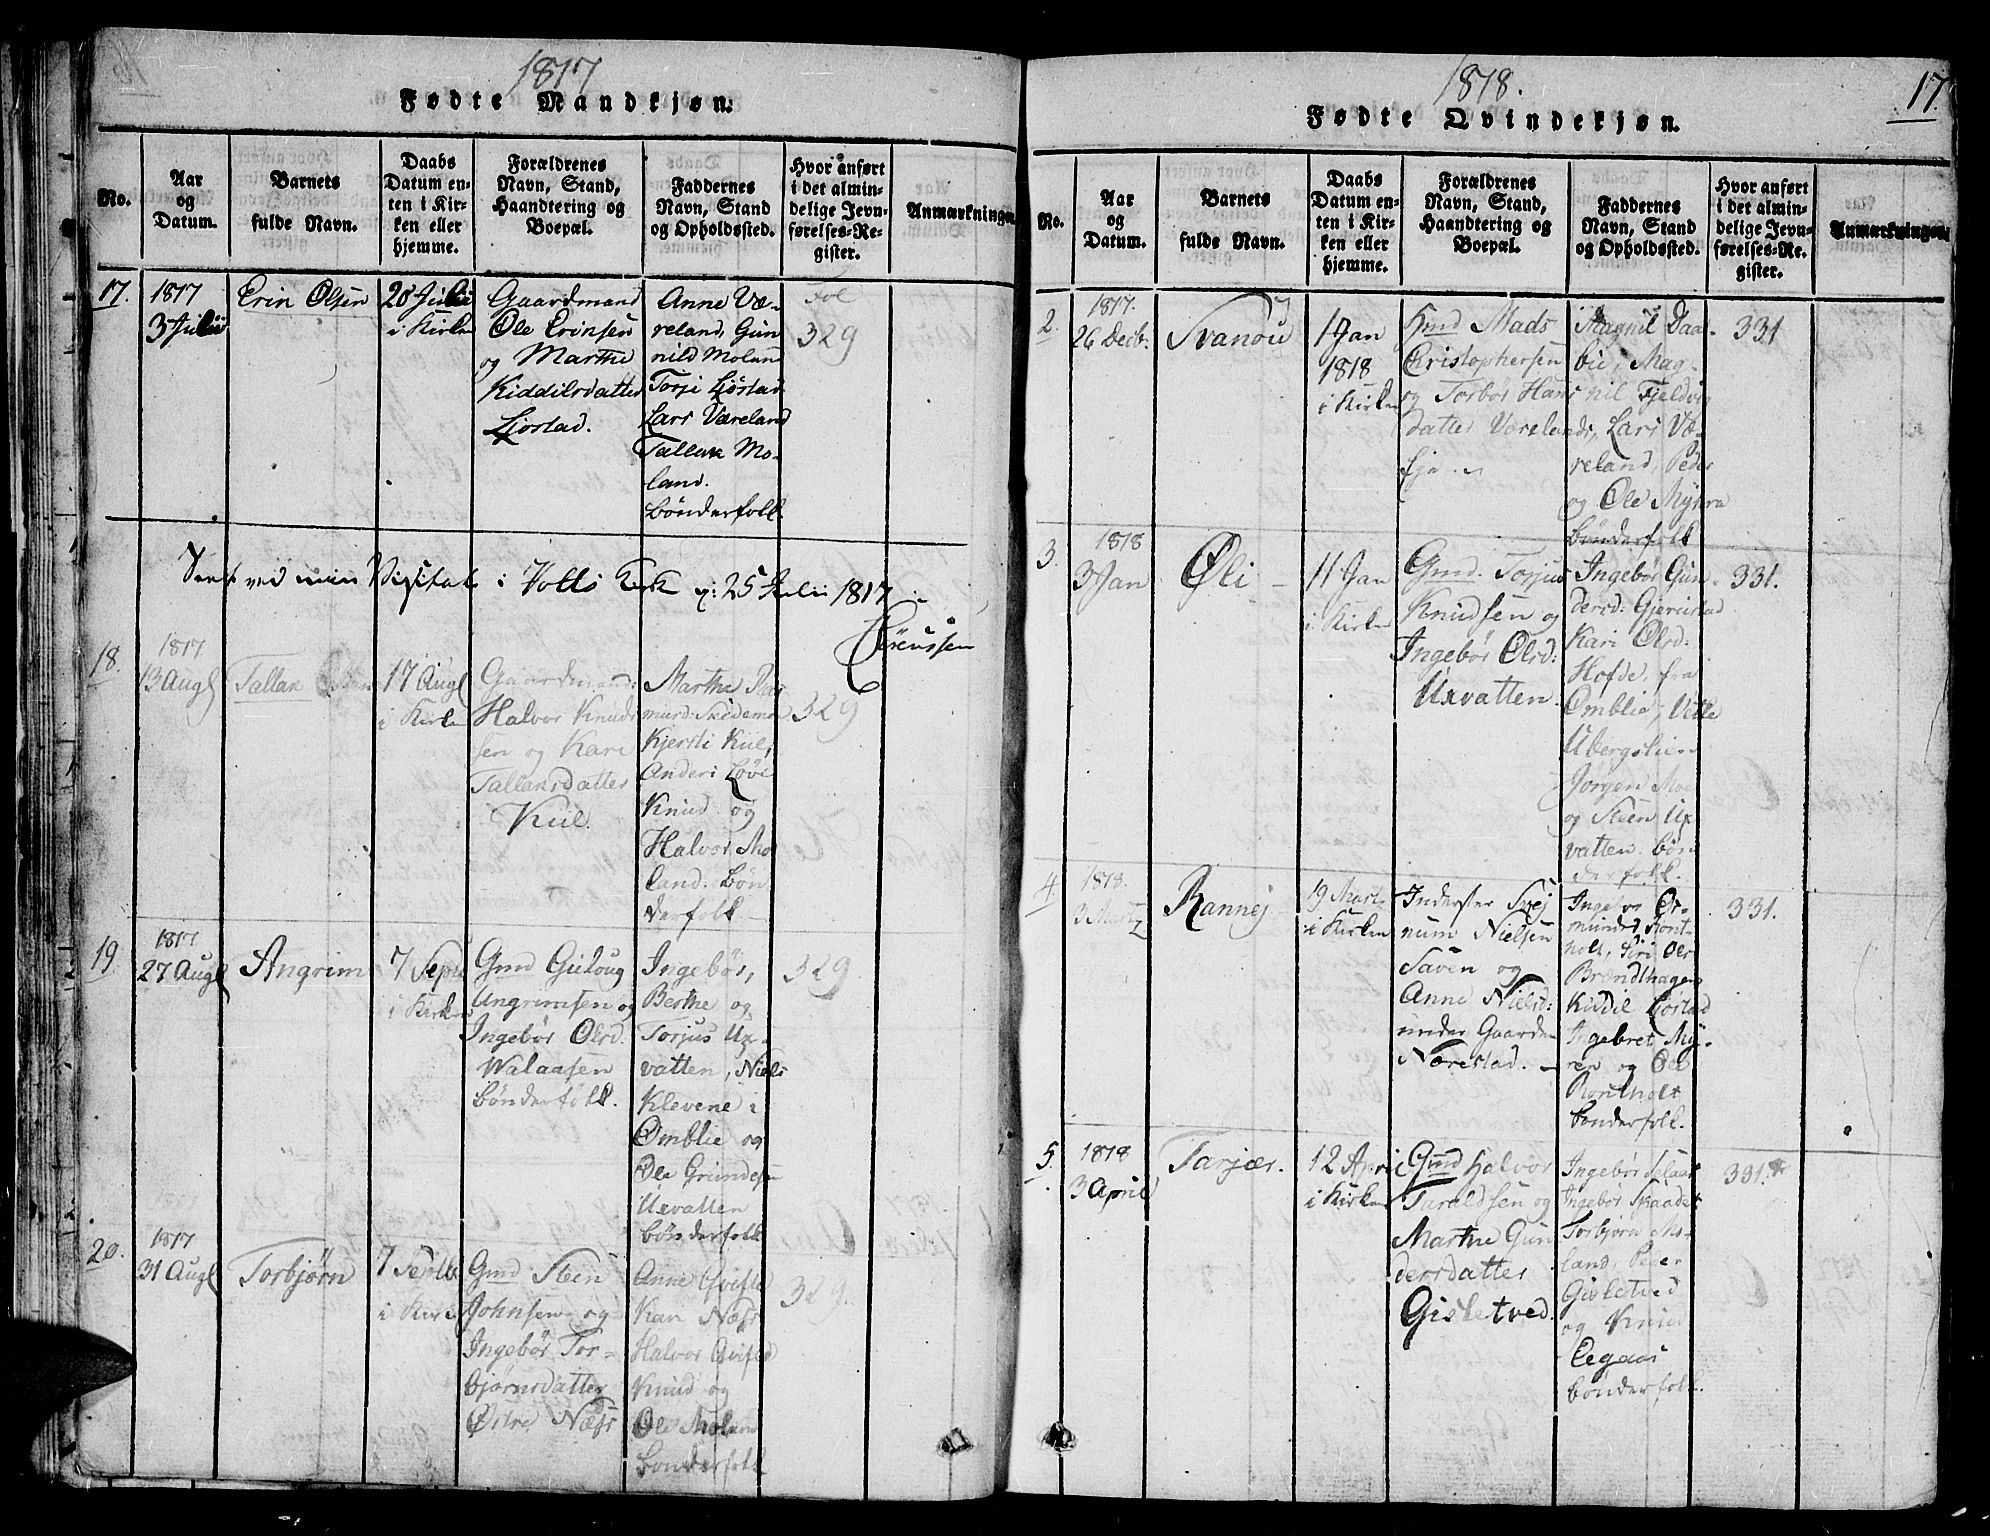 1817
Fødte Mandkjøn.
No.
Aar
og
Datum.
Barnets
fulde Navn.
Daabs
Datum en-
ten i Kir-
ken eller
hjemme.
Forældrenes
Navn, Stand,
Haandtering og
Boepæl.
Faddernes
Navn, Stand
og Opholdssted.
Hvor anført
i det almin-
delige Jevn-
førelses-Re-
gister.
Anmærkninger.
17.
1817
3 Julii
Erin Olsen
20 Julii
i Kirken
Gaardmand
Ole Erinsen
og Marthe
Kiddilsdatter
Liøstad.
Anne Væ-
reland, Gun
nild Moland
Torje Liøstad
Lars Væreland
Tallak Mo-
land.
bønderfolk.
Fol
329
Seet ved min Visitats i Volds Kirk d: 25 Julii 1817
Sørenssen
18.
1817
13 Augl
Tallak
17 Augl
i Kirken
Gaardmand:
Halvor Knud
sen og Kari
Tallaksdatter
Kiil.
Marthe Ras
musd: Skidemo
Kjersti Kiil,
Anders Løvi
Knud og
Halvor Mo
land. bøn
derfolk
329
19.
1817
27 Augl
Angrim
7 Sept
i Kirken
Gmd Gieloug
Ungrimsen og
Ingebør Olsd.
Walaasen
bønderfolk.
Ingebør,
Berthe og
Torjus Ux-
vatten, Niels
Klevene i
Omblie og
Ole Grundes
Uxvatten
bønderfolk
329
20.
1817
31 Augl
Torbjørn
7 Septb
i Kirk
Gmd Steen
Johnsen og
Ingebør Tor-
bjørnsdatter
Øitre Næss
Anne Qvifted
Kari Næss
Halvor Qvifted
Knud og
Ole Moland
bønderfolk
329.
1818.
17.
Fødte Qvindekjøn.
No.
Aar
og
Datum.
Barnets
fulde Navn.
Daabs
Datum en-
ten i Kir-
ken eller
hjemme.
Forældrenes
Navn, Stand,
Haandtering og
Boepæl.
Faddernes
Navn, Stand
og Opholdssted.
Hvor anført
i det almin-
delige Jevn-
førelses-Re-
gister.
Anmærkninger.
2.
1817.
26 Decbr.
Svanou
1 Jan
1818
i Kirken
Hmd Mads
Christophersen
og Torbør Hans
datter Værelands
Eje
Magnil Daa-
bu, Mag-
nil Fjeldvig
Lars Væ-
reland, Peder
og Ole Myhra
bønderfolk
331
3.
1818
3 Jan
Øli
11 Jan
i Kirken
Gmd. Torjus
Knudsen og
Ingebør Olsd:
Uxvatten.
Ingebør Gun-
dersd: Gjerustad
Kari Olsd:
Hofde, fra
Omblie, Vetle
Ubergslien
Jørgen Moe
og Steen Ux
vatten. bøn
derfolk.
331.
4
1818.
3 Martz
Rannej
19 Martz
i Kirken
Inderster Svej
num Nielsen
Saven og
Anne Nielsd:
under Gaarden
Nærestad.
Ingebor Or-
munds Ront-
holt, Siri Ols
Brændlhagen
Kiddil Liøstad
Ingebret My-
ren og Ole
Rontholt
bønderfolk.
331.
5.
1818
3 April
Tarjær.
12 April
i Kirken
Gmd Halvor
Taraldsen og
Marthe Gun
dersdatter
Gisletved
Ingebør Selaas
Ingebør Skaade
Torbjørn Mo-
land, Peder
Gisletved
og Knud
Eegaas
bønderfolk.
331.